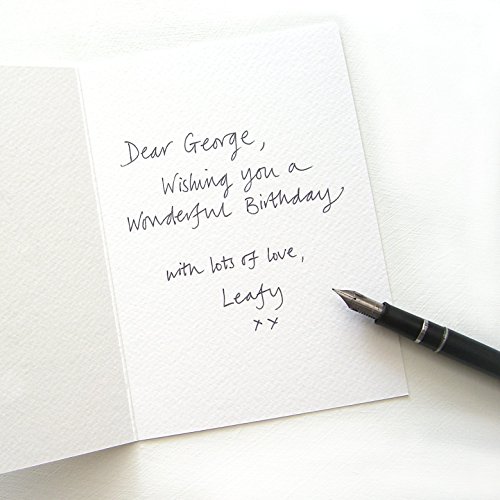 Dear George,
Wishing you a
Wonderful Birthday,
with lots of love,
Leafy
xx